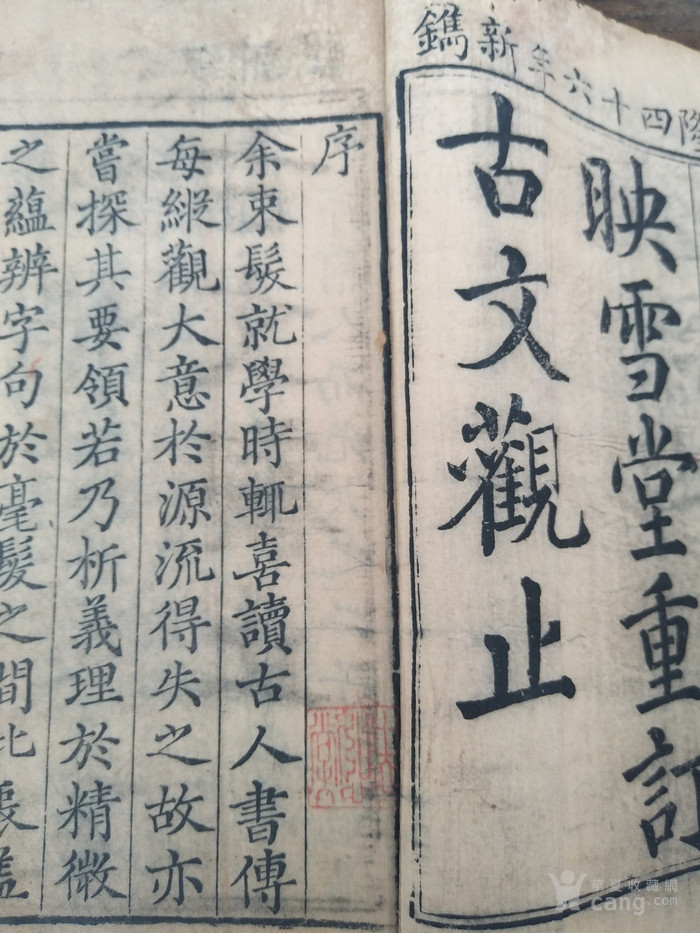 隆四十六年新鐫
映雪堂重訂
古文觀止
序
余束髮就學時輒喜讀古人書傳
每縱觀大意扵源流得失之故亦
嘗探其要領若乃析義理於精微
之蘊辨字句於毫髮之間此衷蓋
華夏收藏網
cang.com